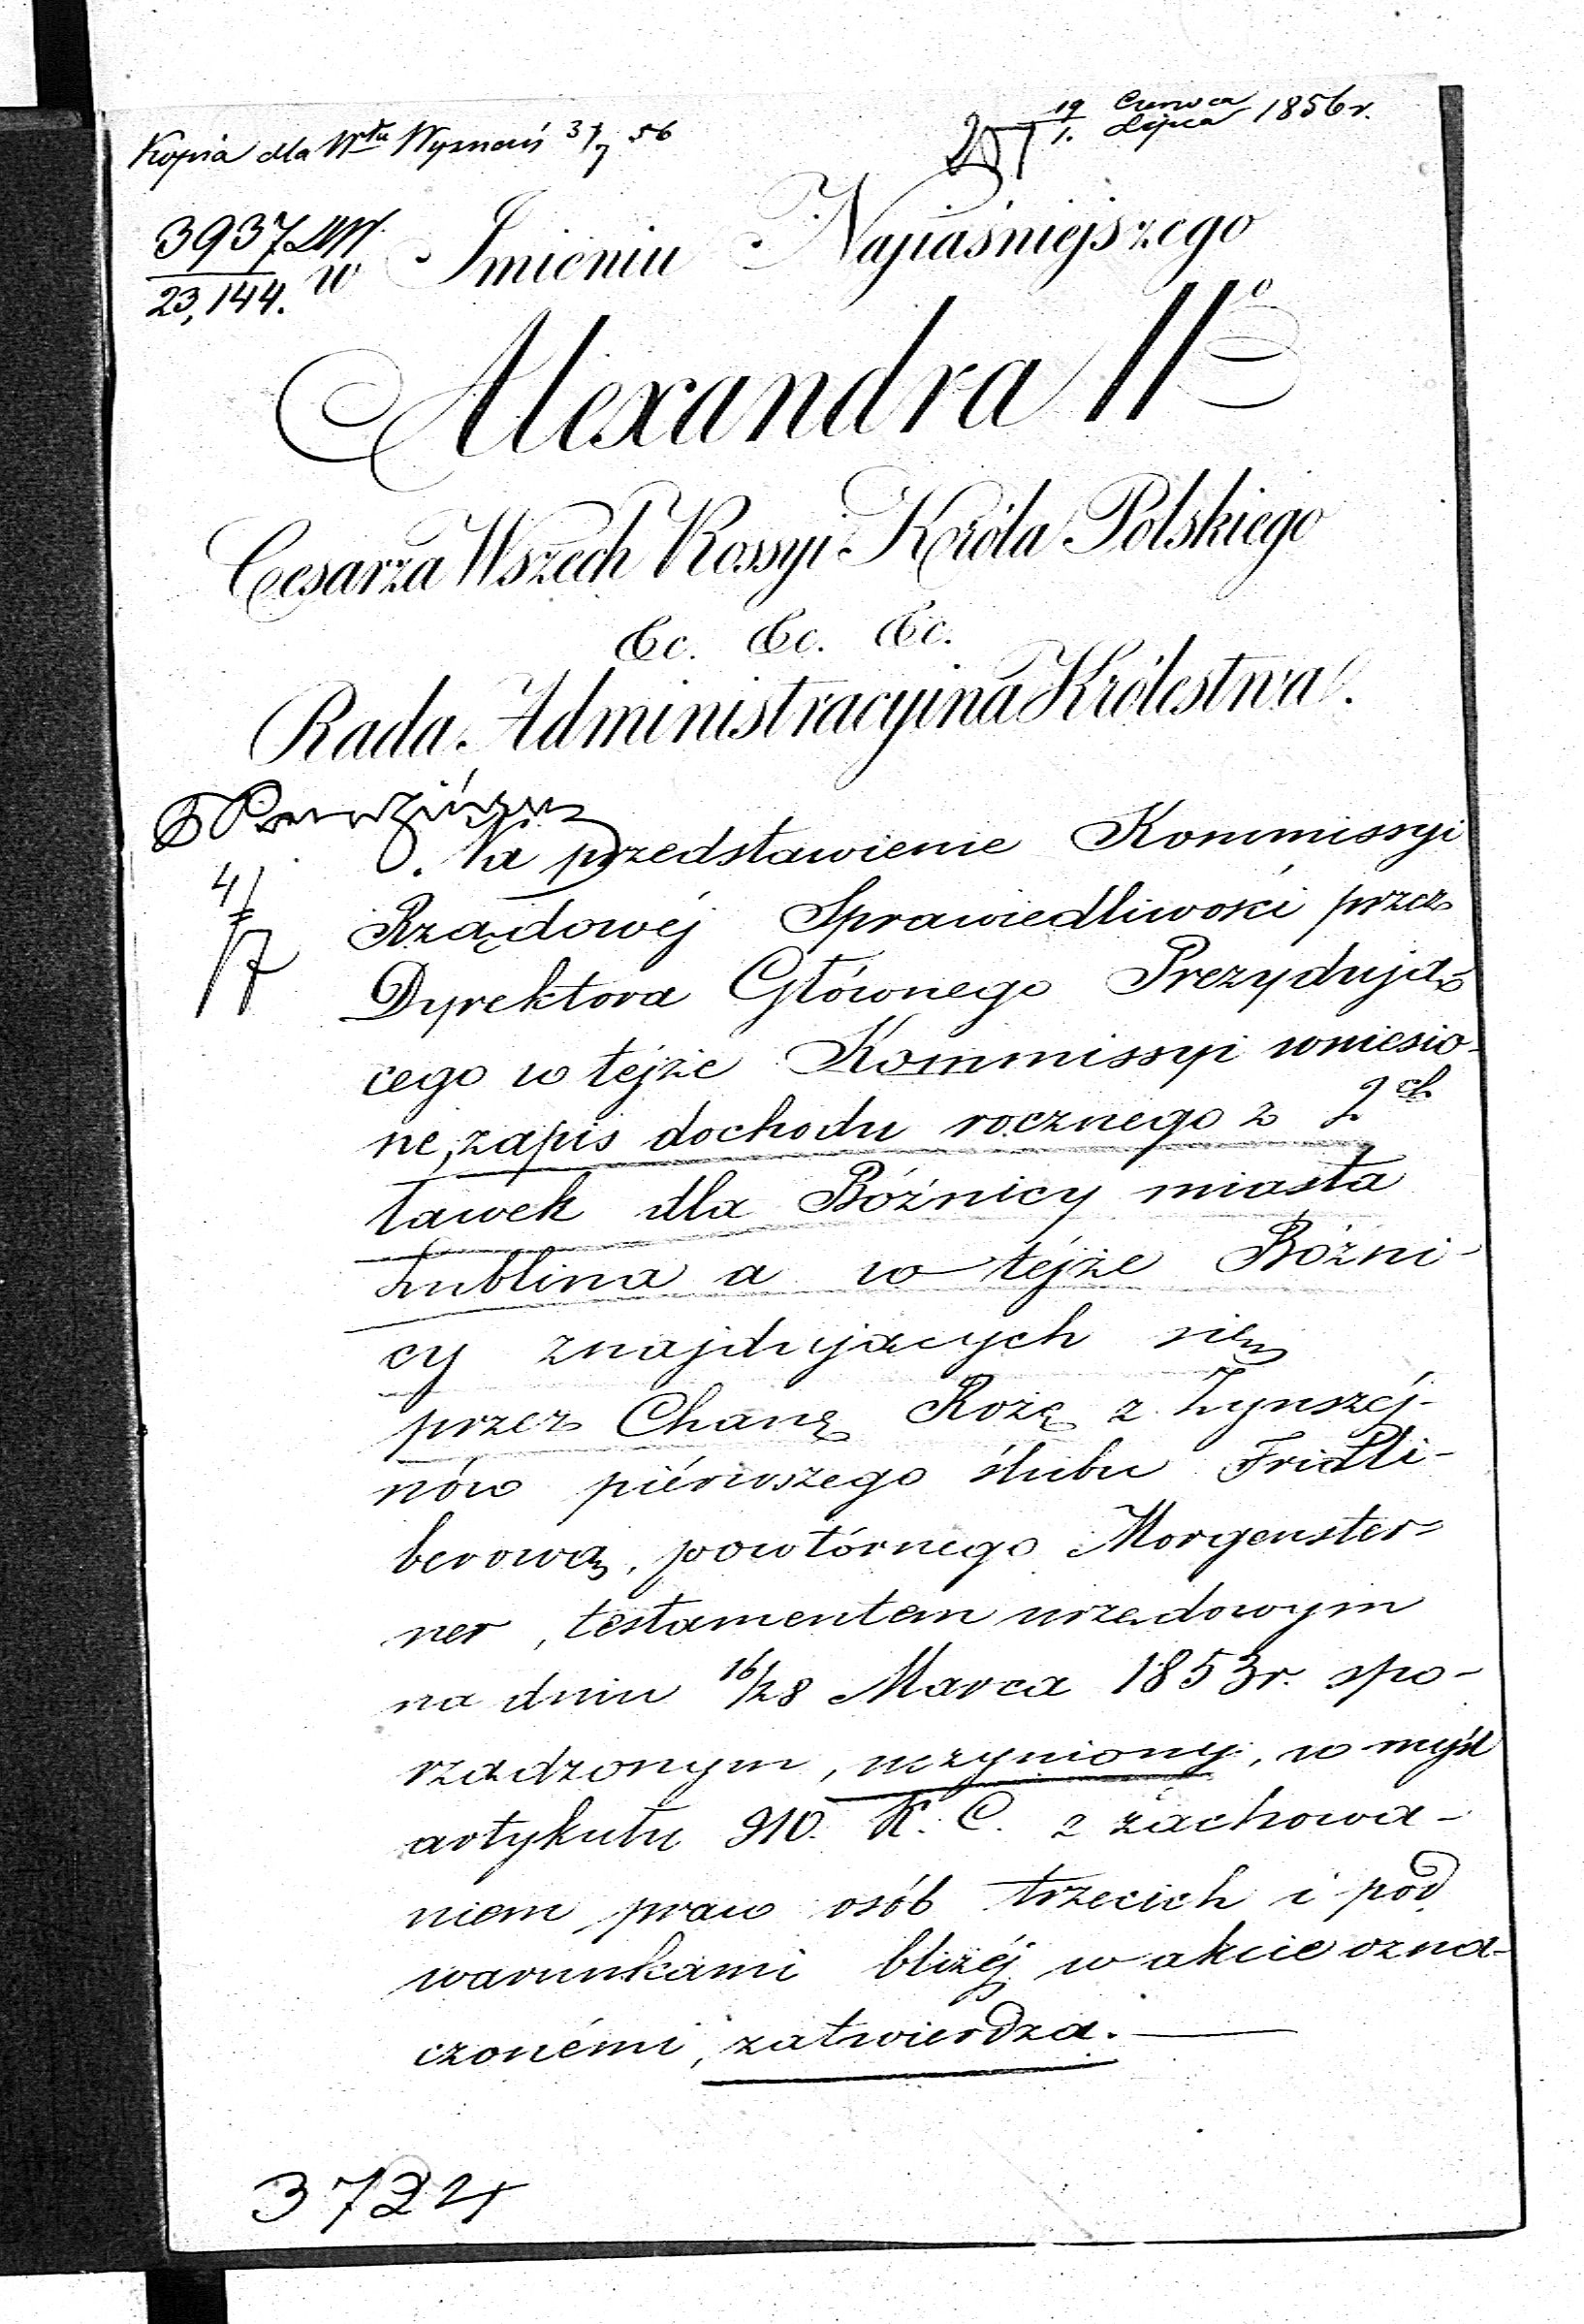 Kopia dla Włu Wyznań 3/7 56
19 Czerwca
1. Lipca 1856 r.
3937
23,144.
w Imieniu Najjaśniejszego
Alexandra IIo
Cesarza Wszech Rossyi Króla Polskiego
&c. &c. &c.
Rada Administracyjna Królestwa.
Na przedstawienie Kommissyi
4/7
Rządowéj Sprawiedliwości przez
Dyrektora Głównego Prezydują-
cego w tejże Kommissyi wniesio-
ne, zapis dochodu rocznego z 2ch
ławek dla Bóźnicy miasta
Lublina a w tejże Bóźni-
cy znajdujących się
przez Chanę Rozę z Zynszéj-
nów piérwszego ślubu Fridli-
berową, powtórnego Morgenster-
ner, testamentem urzędowym
na dniu 16/28 Marca 1853 r. spo-
rządzonym, uczyniony, w myśl
artykułu 910. K. C. z zachowa-
niem praw osób trzecich i pod
warunkami bliżéj w akcie ozna-
czonémi, zatwierdza.
3724